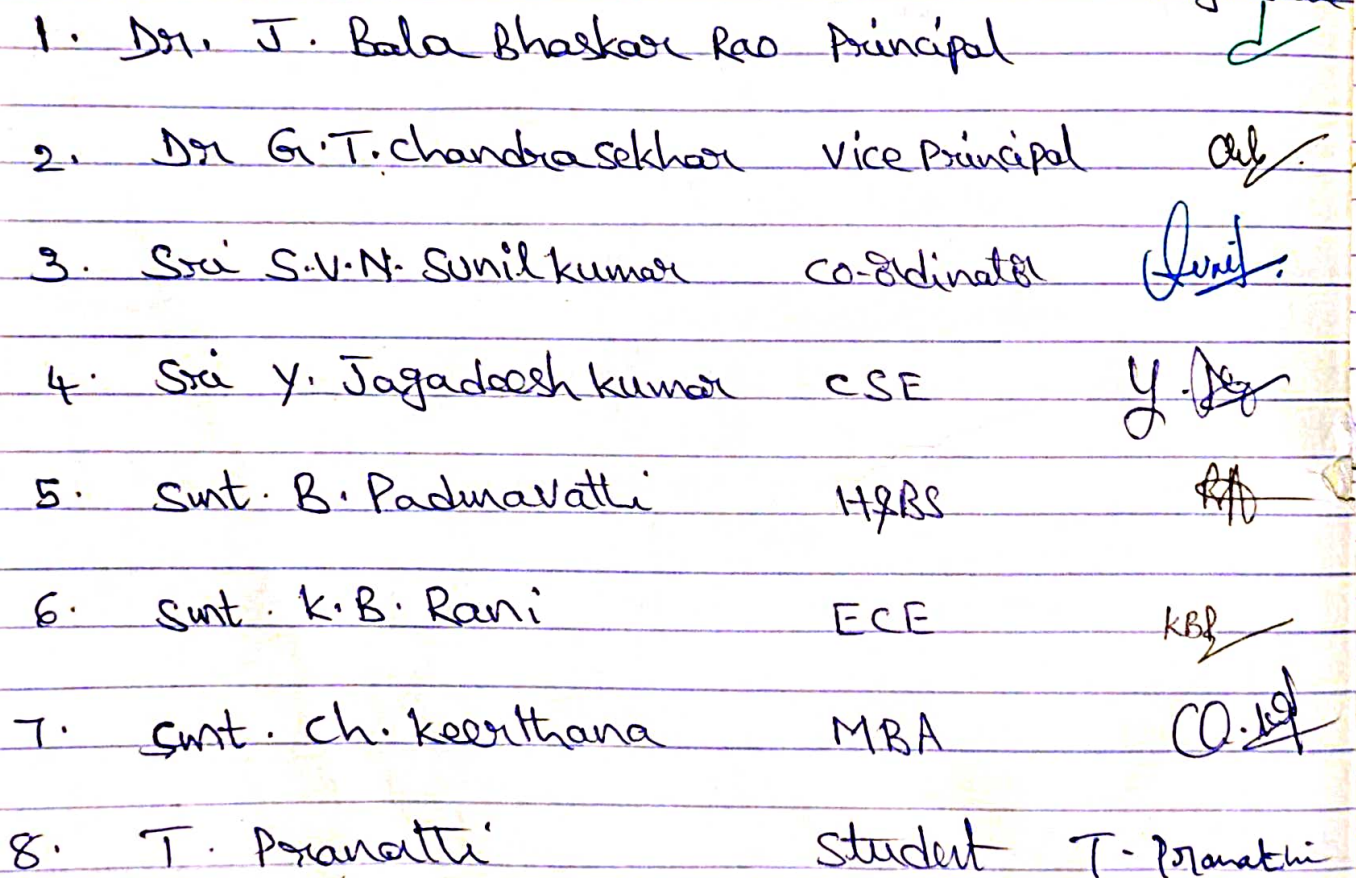 1. Dr. J. Bala Bhaskar Rao Principal
2. Dr G.T. Chandra Sekhar Vice Principal
3. Sri S.V.N. Sunil kumar Co-ordinator Sunil.
4. Sri Y. Jagadeesh kumar CSE Y.
5. Smt. B. Padmavathi H&BS
6. Smt. K.B. Rani ECE KBR
7. Smt. Ch. Keerthana MBA
8. T. Pranathi Student T. Pranathi